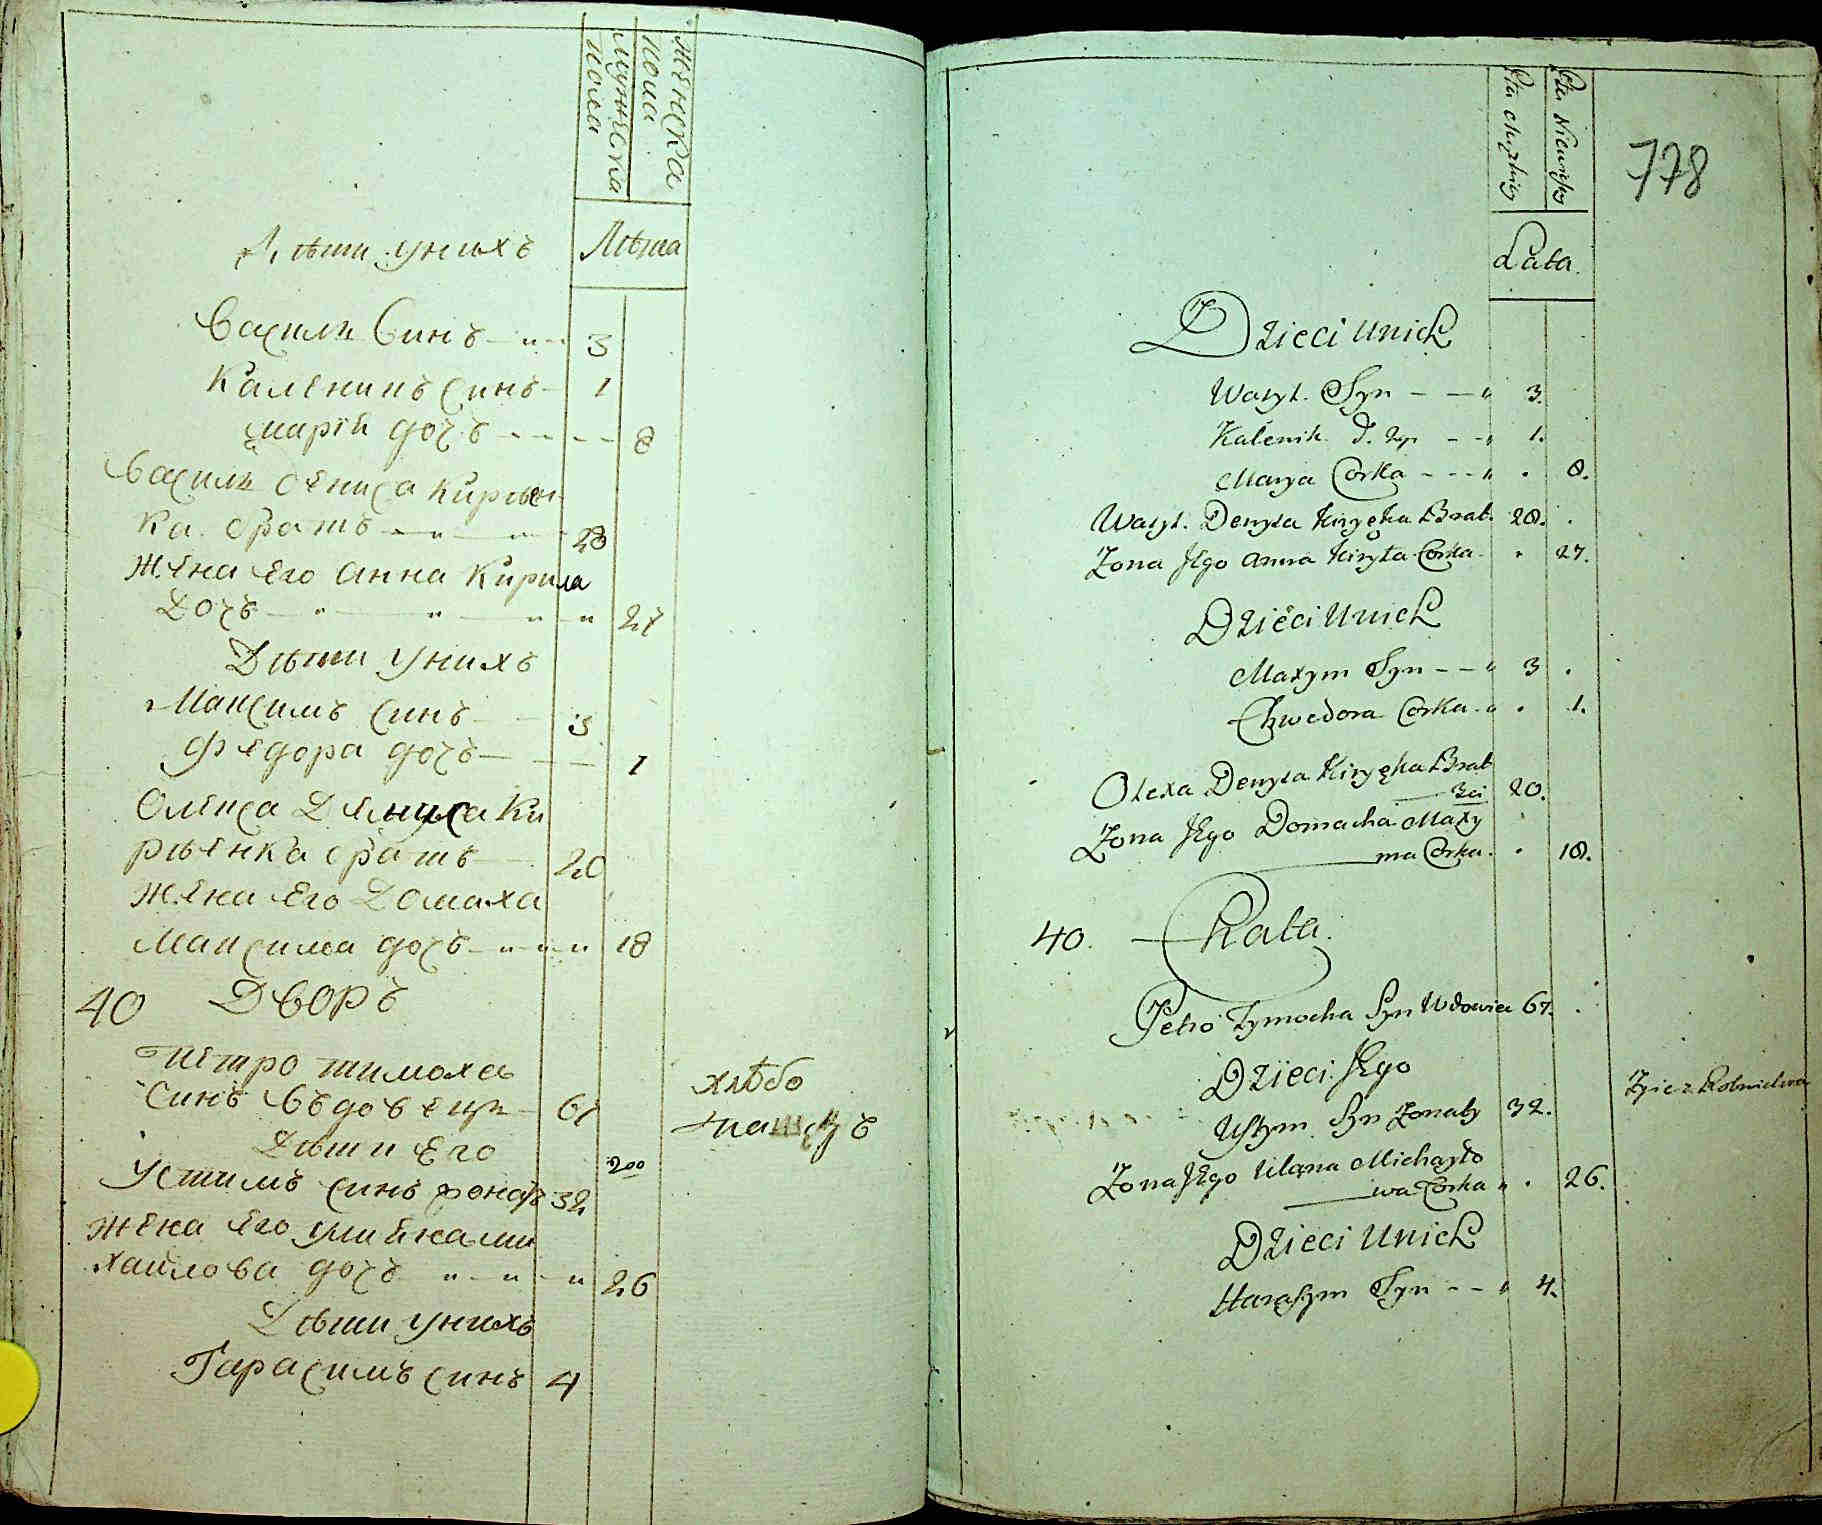 женска
пола
мужеска
пола
Дѣти унихъ
Лѣта
Василь Синъ 3
Каленикъ синъ 1
Марія дочъ 8
Василь Дениса Кирѣен
ка братъ 28
Жена его Анна Кирила
Дочъ 27
Дѣти унихъ
Максимъ синъ 3
Федора дочъ 1
Олекса Дениса Ки
рѣенка братъ 20
Жена его Домаха
Максима дочъ 18
40 Дворъ
Петро тимоха
Синъ вьдовець 67
хлѣбо
пашецъ
Дѣти его
200
Устимъ синъ жонатъ 32
Жена его улияна ми
хайлова дочъ 26
Дѣти унихъ
Гарасимъ синъ 4
778
Płci Męzkiey
Płci Niewiesciey
Lata
Dzieci unich
Wasyl. Syn 3.
Kalenik D. Syn 1.
Marya Corka 8.
Wasyl. Denysa Kiryęka Brat 28.
Zona Jego anna Kiryła Corka 27.
Dzieci Unich
Maxym Syn 3
Chwedora Corka 1.
Olexa Denysa Kiryęka Brat
3ci 20.
Zona JEgo Domacha Maxy
ma Corka. 18.
40. Chata.
Petro Tymocha Syn Wdowiec 67.
Dzieci JEgo
Zyie z Rolnictwa
Ustym Syn Zonaty 32.
Zona JEgo Ulana Michayło
wa Corka 26.
Dzieci Unich
Harasym Syn 4.